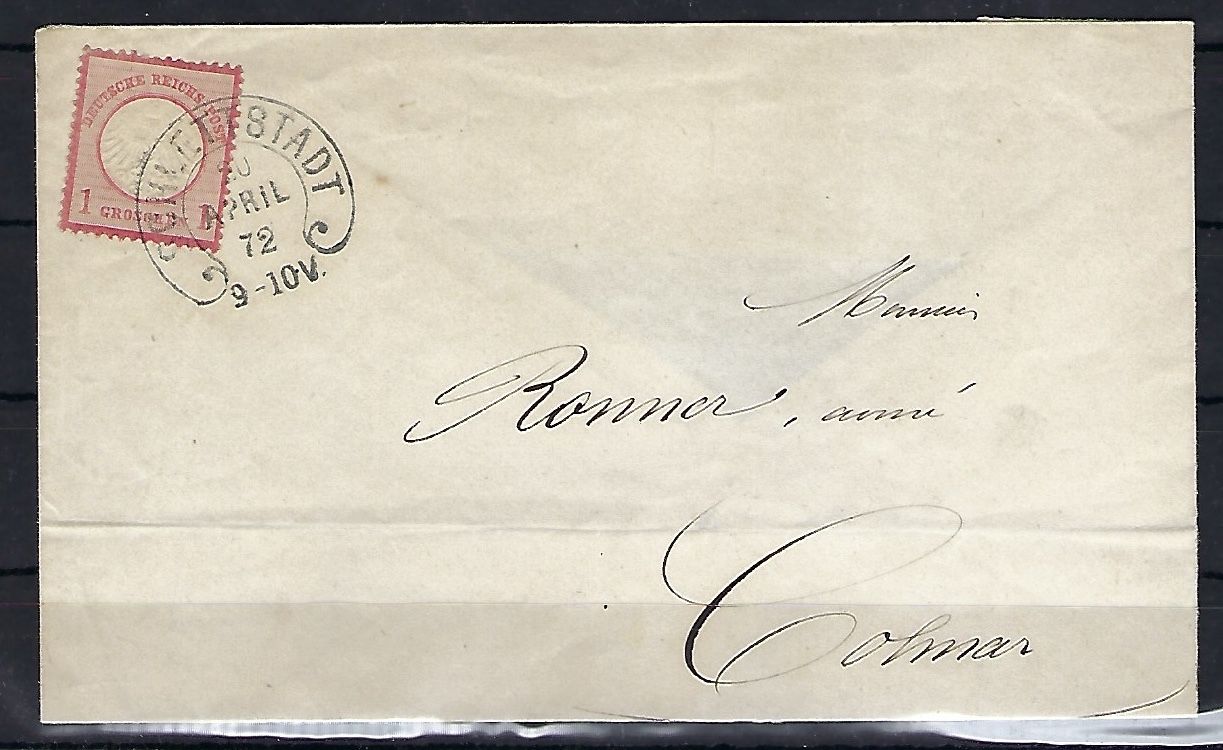 DEUTSCHE REICHS-POST
1 GROSCHEN 1
SCHLETTSTADT
APRIL
72
9-10V.
Monsieur
Ronner, ainé
Colmar